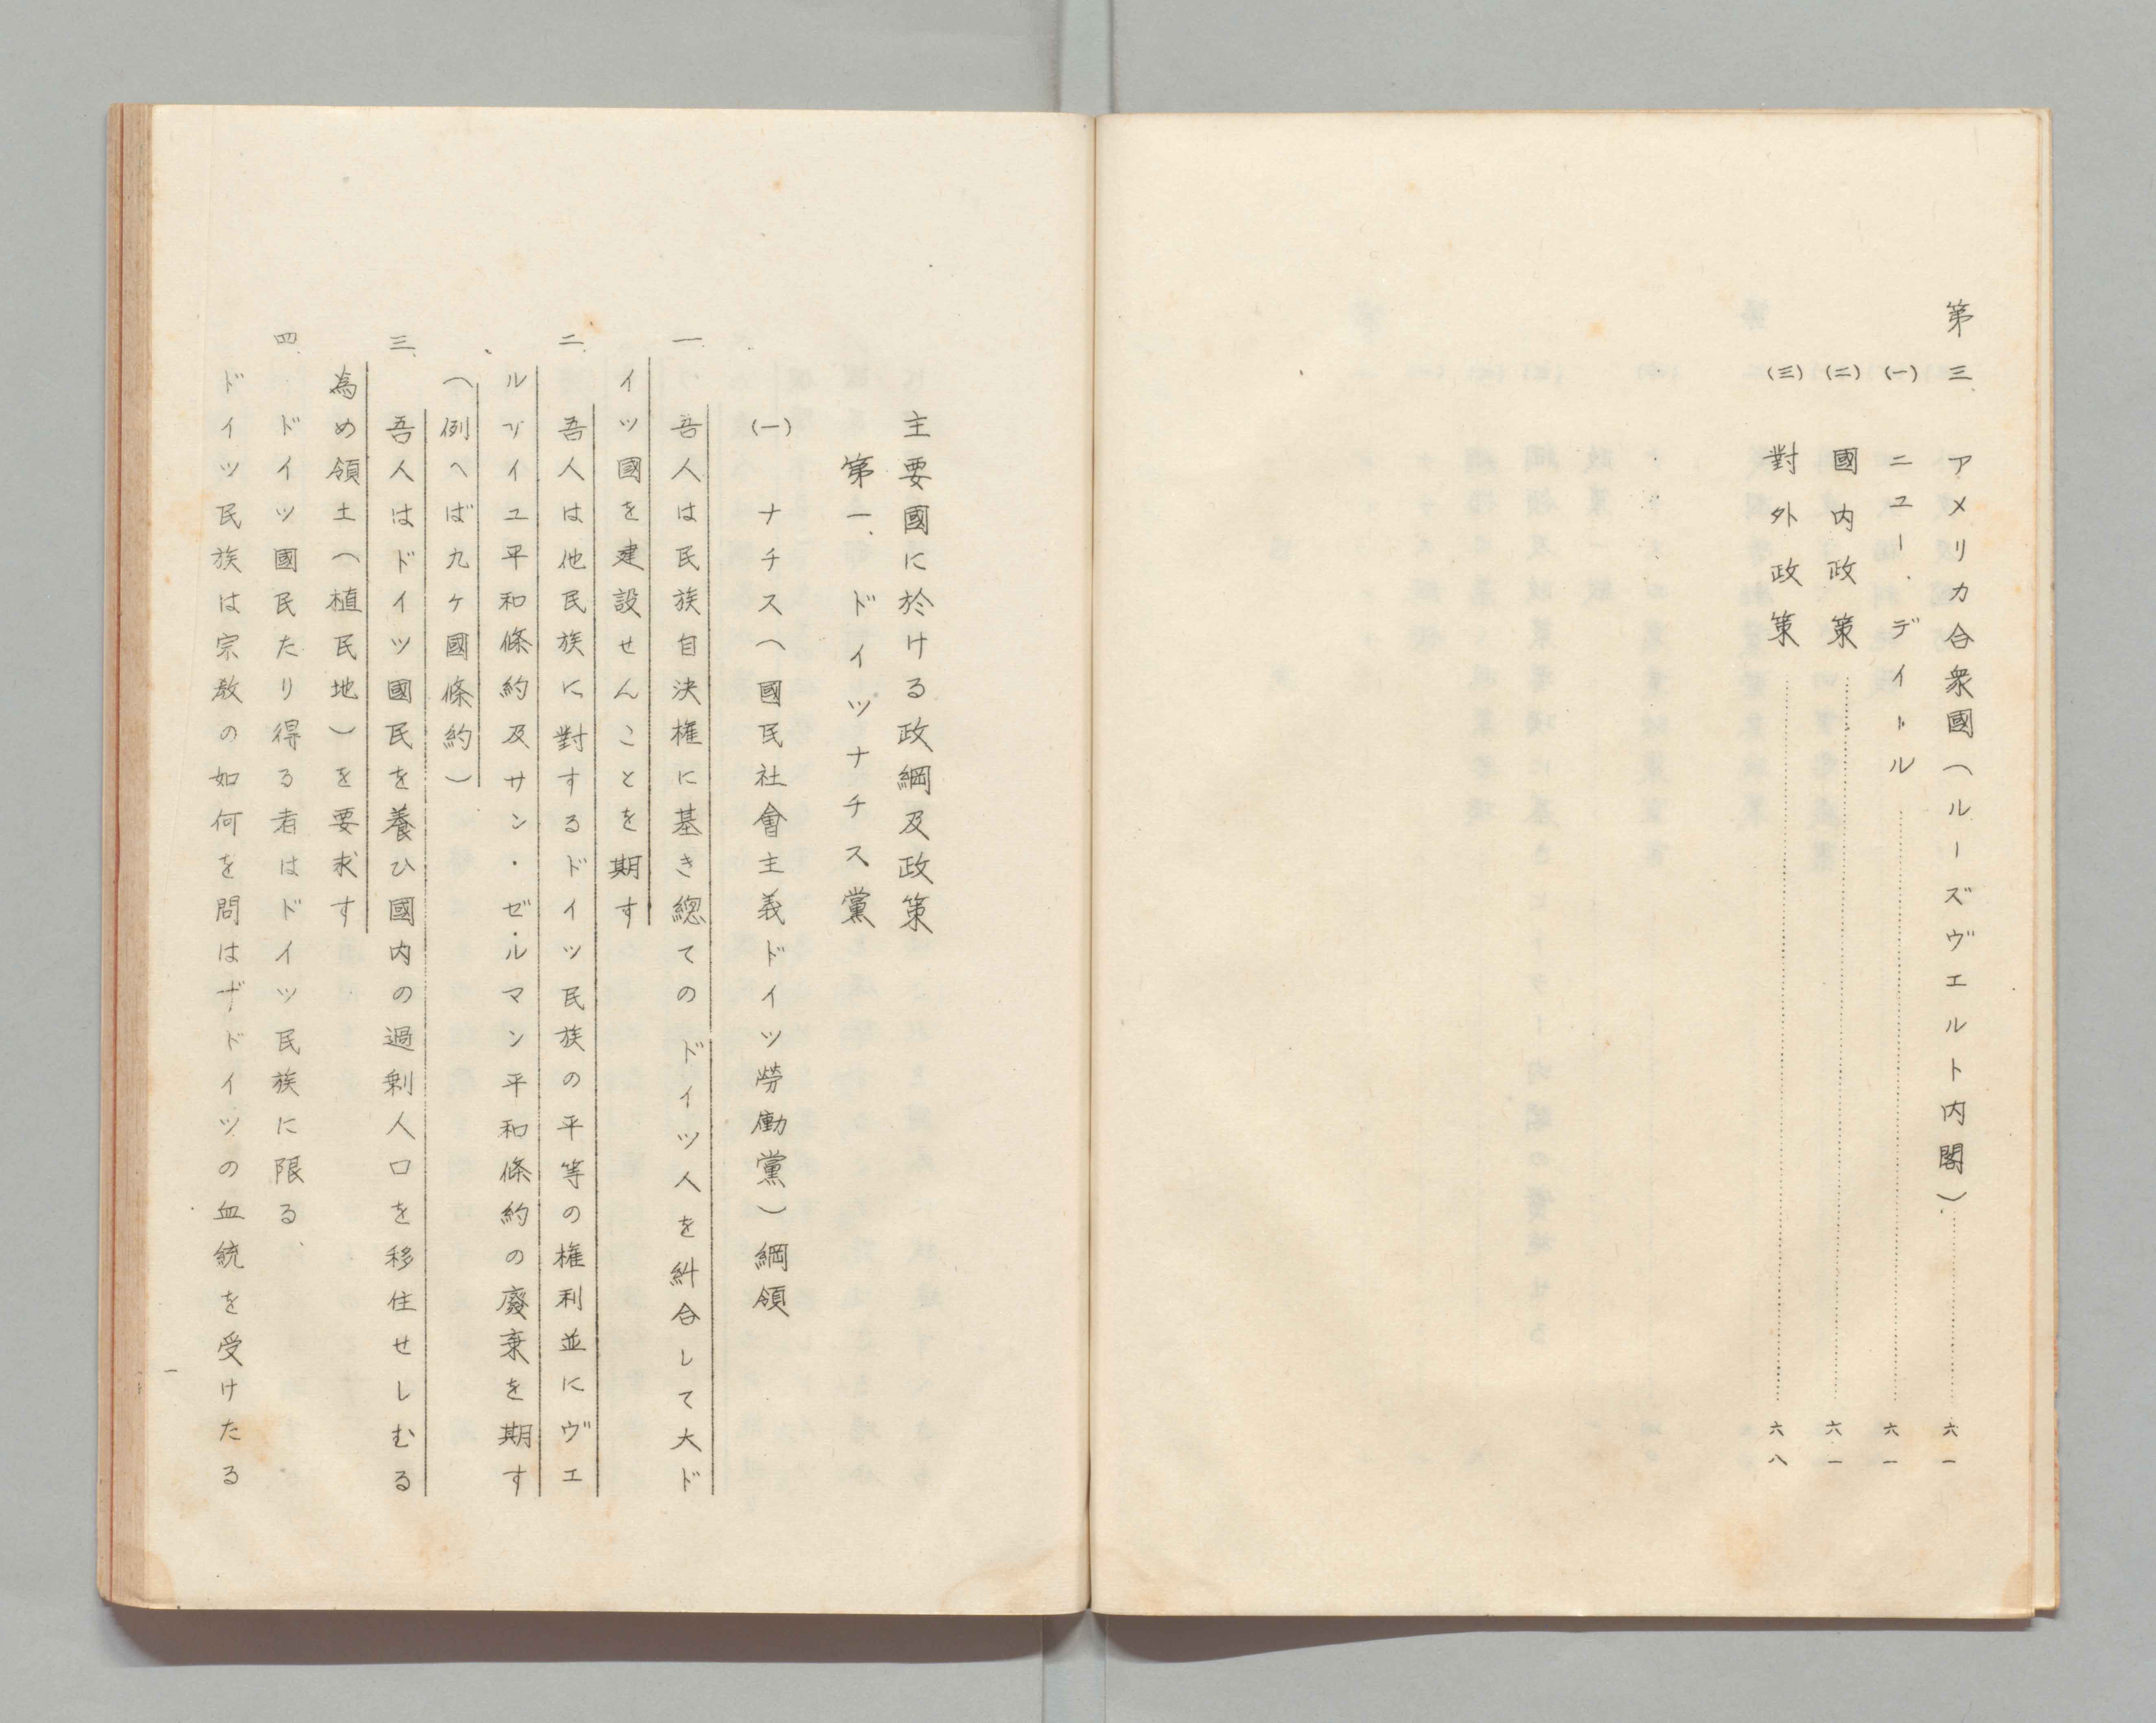 第三、アメリカ合衆國(ルーズヴエルト内閣)……六一
(一)ニユー、デイトル……六一
(二)國内政策……六一
(三)對外政策……六八
主要國に於ける政綱及政策
第一、ドイツナチス黨
(一)ナチス(國民社會主義ドイツ勞働黨)綱領
一、吾人は民族自決権に基き總てのドイツ人を糾合して大ド
イツ國を建設せんことを期す
二、吾人は他民族に對するドイツ民族の平等の権利並にヴエ
ルサイユ平和條約及サン・ゼルマン平和條約の廢棄を期す
(例へば九ケ國條約)
三、吾人はドイツ國民を養ひ國内の過剰人口を移住せしむる
為め領土(植民地)を要求す
四、ドイツ國民たり得る者はドイツ民族に限る、
ドイツ民族は宗教の如何を問はずドイツの血統を受けたる
一